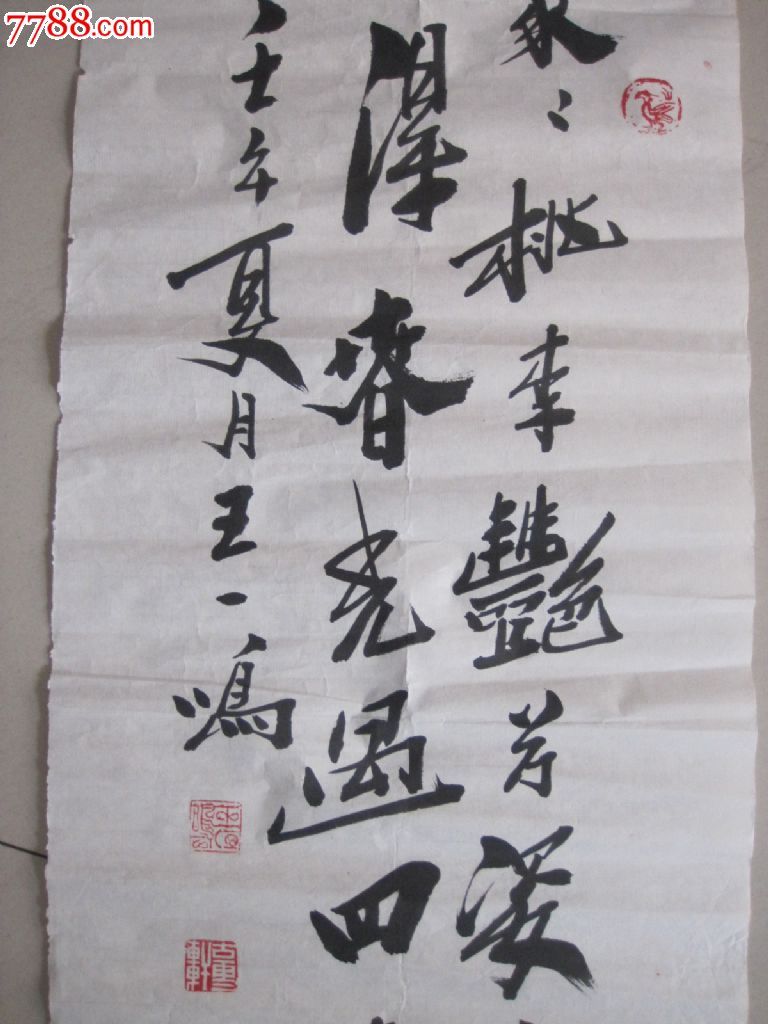 7788.com
家〻桃李艷芳姿
深春光遇四
壬午夏月王一鳴